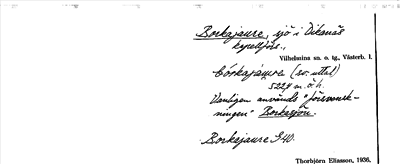 Borkajaure, sjö i Dikanäs
kapellförs.,
Vilhelmina sn. o. tg., Västerb. l.
(sv. uttal)
522,9 m. ö. h.
Vanligen används "försvensk-
ningen" Borkasjön.
Borkajaure G40.
Thorbjörn Eliasson, 1936.